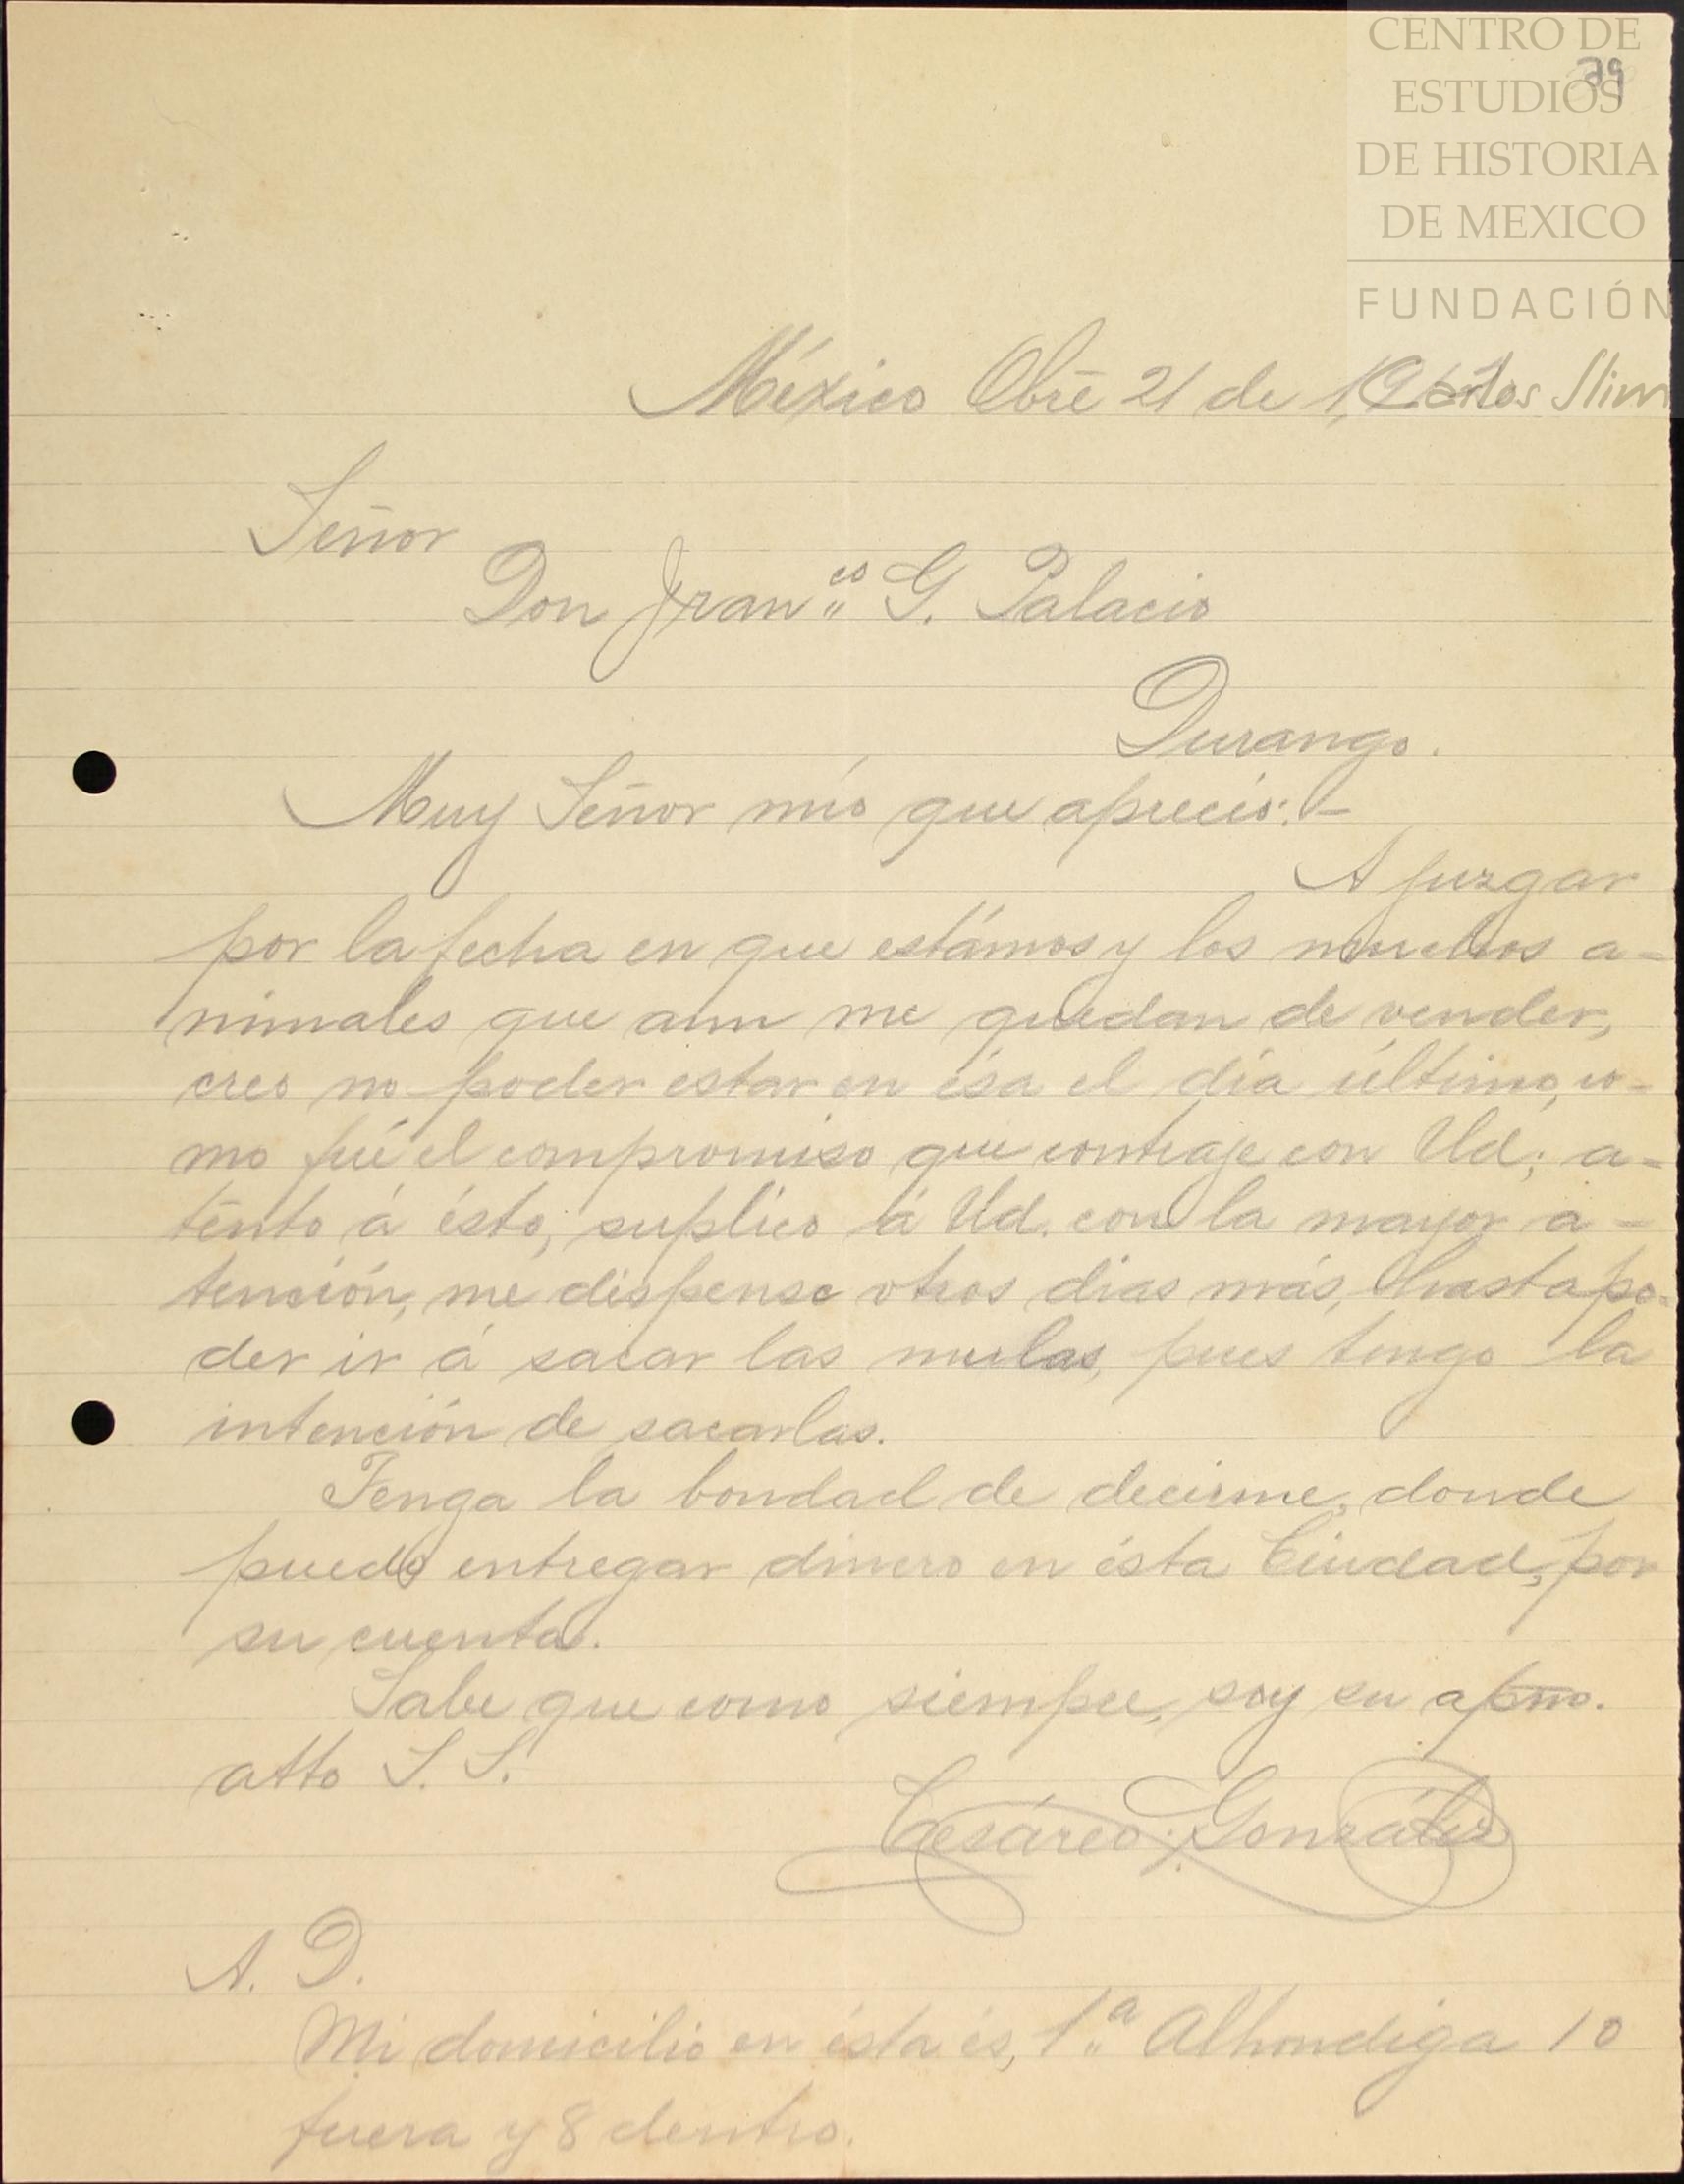 CENTRO DE
ESTUDIOS
DE HISTORIA
DE MEXICO
FUNDACIÓN
Carlos Slim
79
México Obrē 21 de
Señor
Don Fran.co G. Palacio
Durango.
Muy Señor mío que aprecio:-
A juzgar
por la fecha en que estámos y los muchos a-
nimales que aun me quedan de vender,
creo no poder estar en ésa el día último, co-
mo fué el compromiso que contraje con Ud; a-
tento á ésto, suplico á Ud. con la mayor a-
tención, me dispense otros dias más, hasta po-
der ir á sacar las mulas, pues tengo la
intención de sacarlas.
Tenga la bondad de decirme, donde
puedo entregar dinero en ésta Ciudad, por
su cuenta.
Sabe que como siempre, soy su apmo.
atto S. S.
Cesáreo González
A. D.
Mi domicilio en ésta és, 1.a Alhondiga 10
fuera y 8 dentro.